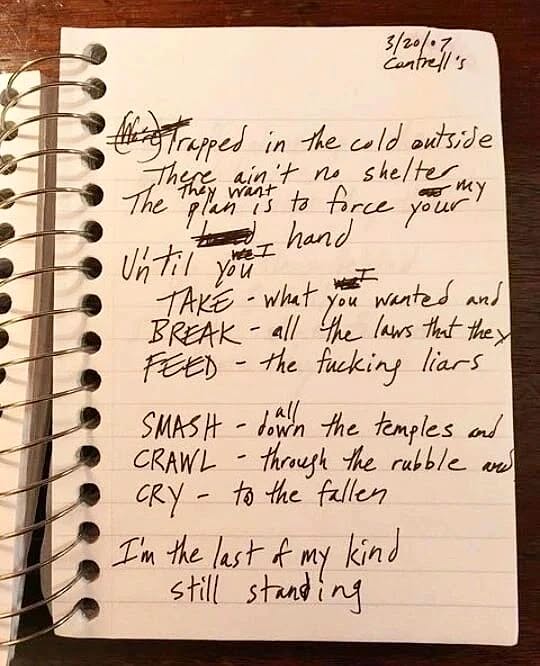 3/20/07
Cantrell's
Trapped in the cold outside
There ain't no shelter
they want my
The plan is to force your
hand
I
Until you
I
TAKE - what you wanted and
BREAK - all the laws that they
FEED - the fucking liars
all
SMASH - down the temples and
CRAWL - through the rubble and
CRY - to the fallen
I'm the last of my kind
still standing